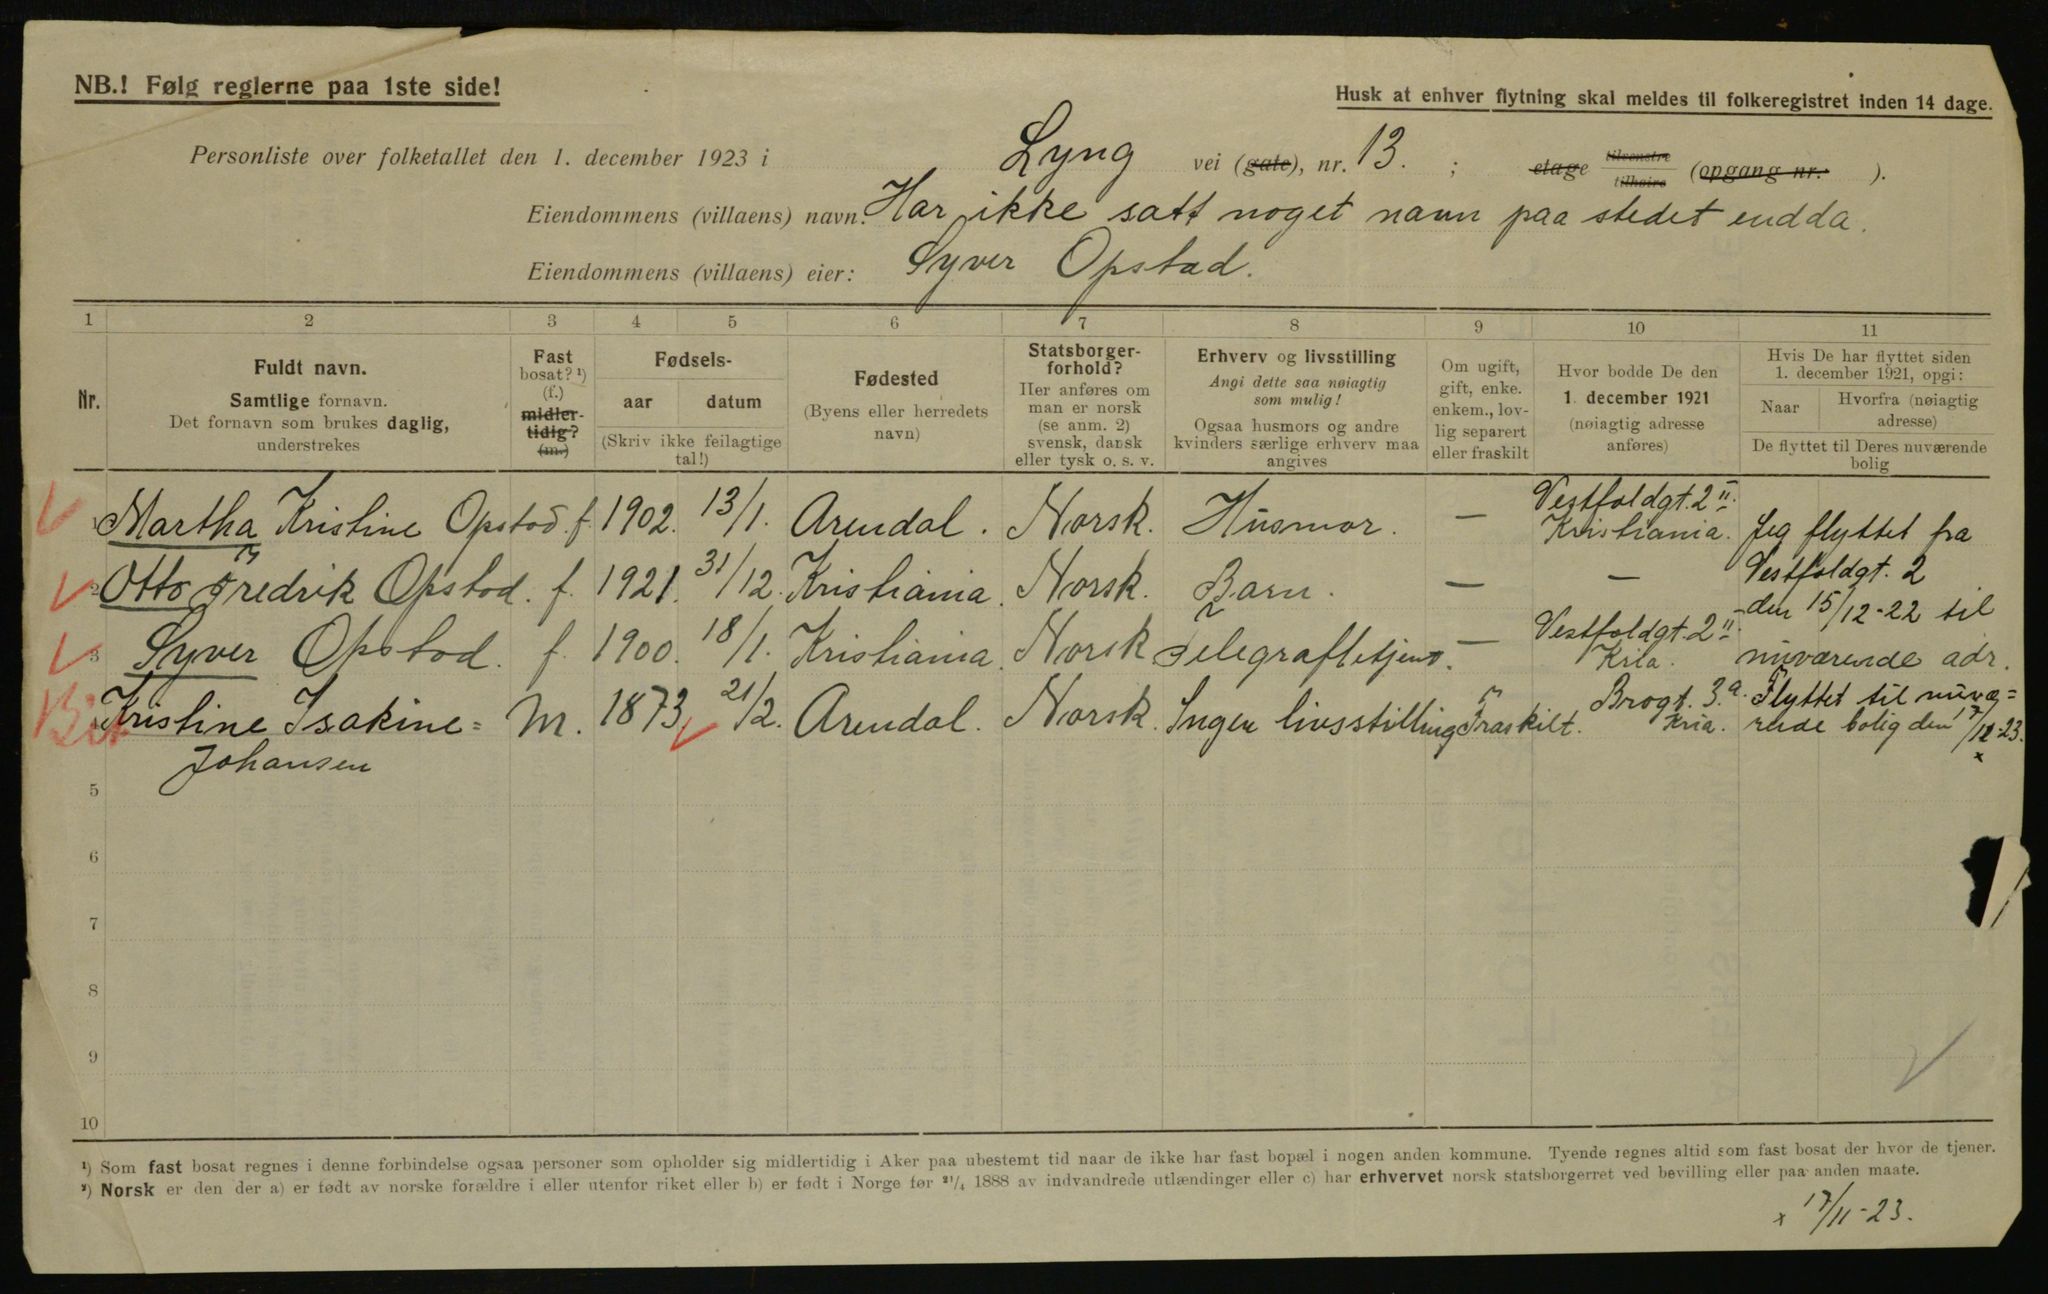 NB.! Følg reglerne paa 1ste side!
Husk at enhver flytning skal meldes til folkeregistret inden 14 dage.
Personliste over folketallet den 1. december 1923 i Lyng vei (gate), nr. 13. ; etage tilvenstre tilhøire (opgang nr. ).
Eiendommens (villaens) navn: Har ikke satt noget navn paa stedet endda.
Eiendommens (villaens) eier: Syver Opstad.
1 2 3 4 5 6 7 8 9 10 11
Nr.
Fuldt navn.
Samtlige fornavn.
Det fornavn som brukes daglig,
understrekes
Fast
bosat? ¹)
(f.)
midler-
tidig?
(m.)
Fødsels-
aar datum
(Skriv ikke feilagtige
tal!)
Fødested
(Byens eller herredets
navn)
Statsborger-
forhold?
Her anføres om
man er norsk
(se anm. 2)
svensk, dansk
eller tysk o. s. v.
Erhverv og livsstilling
Angi dette saa nøiagtig
som mulig!
Ogsaa husmors og andre
kvinders særlige erhverv maa
angives
Om ugift,
gift, enke.
enkem., lov-
lig separert
eller fraskilt
Hvor bodde De den
1. december 1921
(nøiagtig adresse
anføres)
Hvis De har flyttet siden
1. december 1921, opgi:
Naar Hvorfra (nøiagtig
adresse)
De flyttet til Deres nuværende
bolig
1 Martha Kristine Opstad. f. 1902. 13/1. Arendal. Norsk. Husmor. — Vestfoldgt. 2 II.
Kristiania. Jeg flyttet fra
2 Otto Fredrik Opstad. f. 1921. 31/12. Kristiania. Norsk. Barn. — — Vestfoldgt. 2
den 15/12-22 til
3 Syver Opstad. f. 1900. 18/1. Kristiania. Norsk Telegrafletjens. — Vestfoldgt. 2 II.
Kria. nuværende adr.
Kristine Isakine= m. 1873 21/2. Arendal. Norsk. Ingen livsstilling Fraskilt. Brogt. 3.a. Flyttet til nuvæ=
Johansen Kria. rende bolig den 17/12-23.
x
5
6
7
8
9
10
¹) Som fast bosat regnes i denne forbindelse ogsaa personer som opholder sig midlertidig i Aker paa ubestemt tid naar de ikke har fast bopæl i nogen anden kommune. Tyende regnes altid som fast bosat der hvor de tjener.
²) Norsk er den der a) er født av norske forældre i eller utenfor riket eller b) er født i Norge før ²¹/₄ 1888 av indvandrede utlændinger eller c) har erhvervet norsk statsborgerret ved bevilling eller paa anden maate.
x 17/11-23.